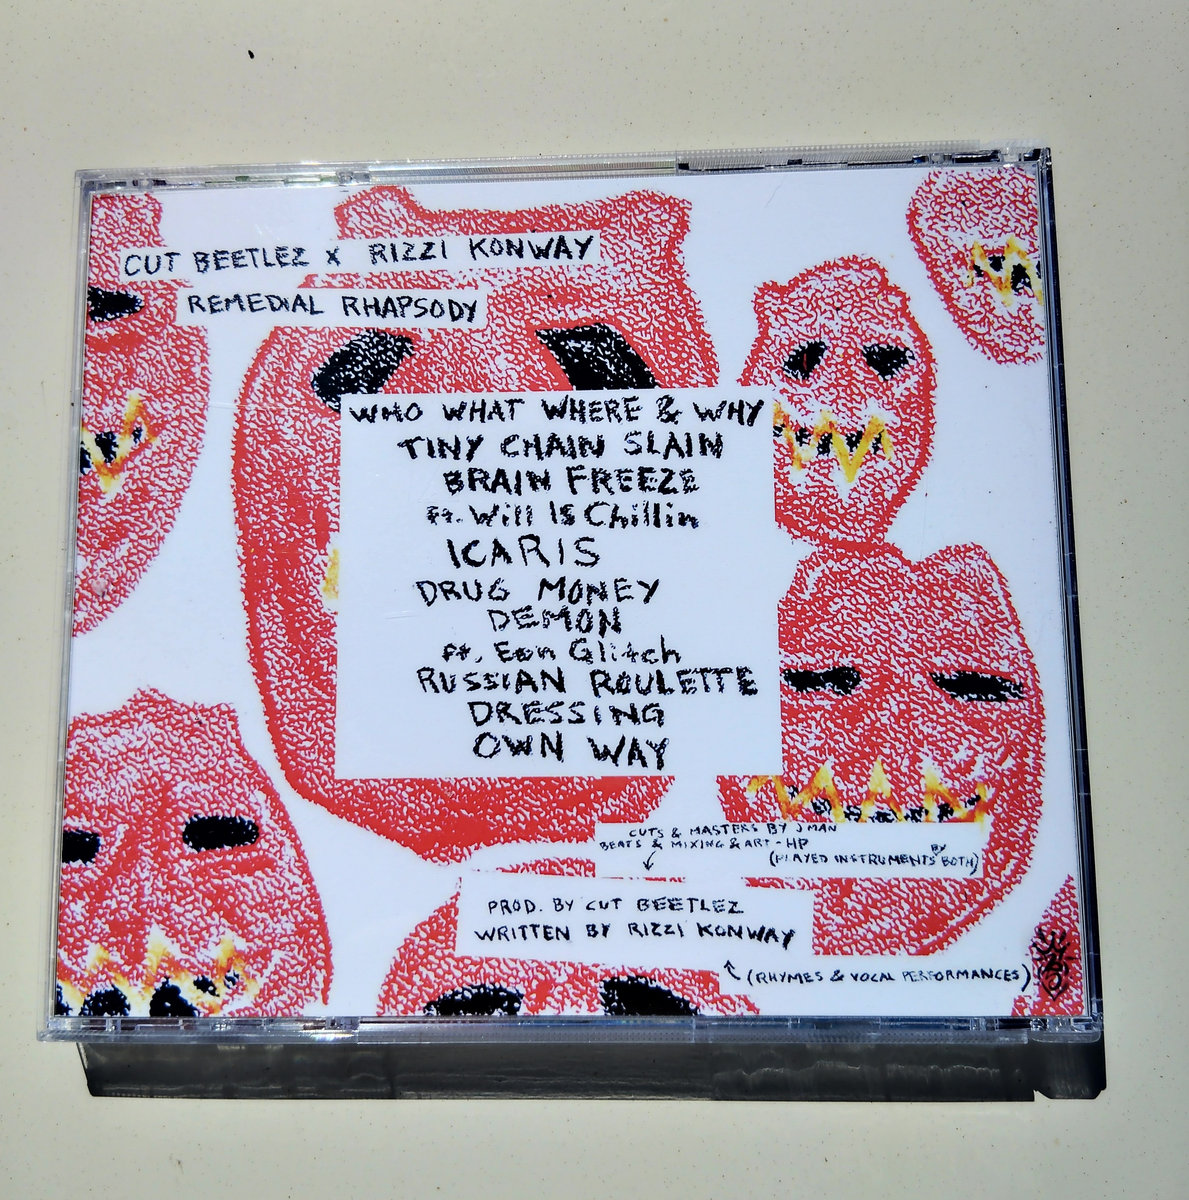 CUT BEETLEZ X RIZZI KONWAY
REMEDIAL RHAPSODY
WHO WHAT WHERE & WHY
TINY CHAIN SLAIN
BRAIN FREEZE
ft. Will Is Chillin
ICARIS
DRUG MONEY
DEMON
ft. Eon Glitch
RUSSIAN ROULETTE
DRESSING
OWN WAY
CUTS & MASTERS BY JMAN
BEATS & MIXING & ART - HP
(PLAYED INSTRUMENTS BY BOTH)
PROD. BY CUT BEETLEZ
WRITTEN BY RIZZI KONWAY
(RHYMES & VOCAL PERFORMANCES)